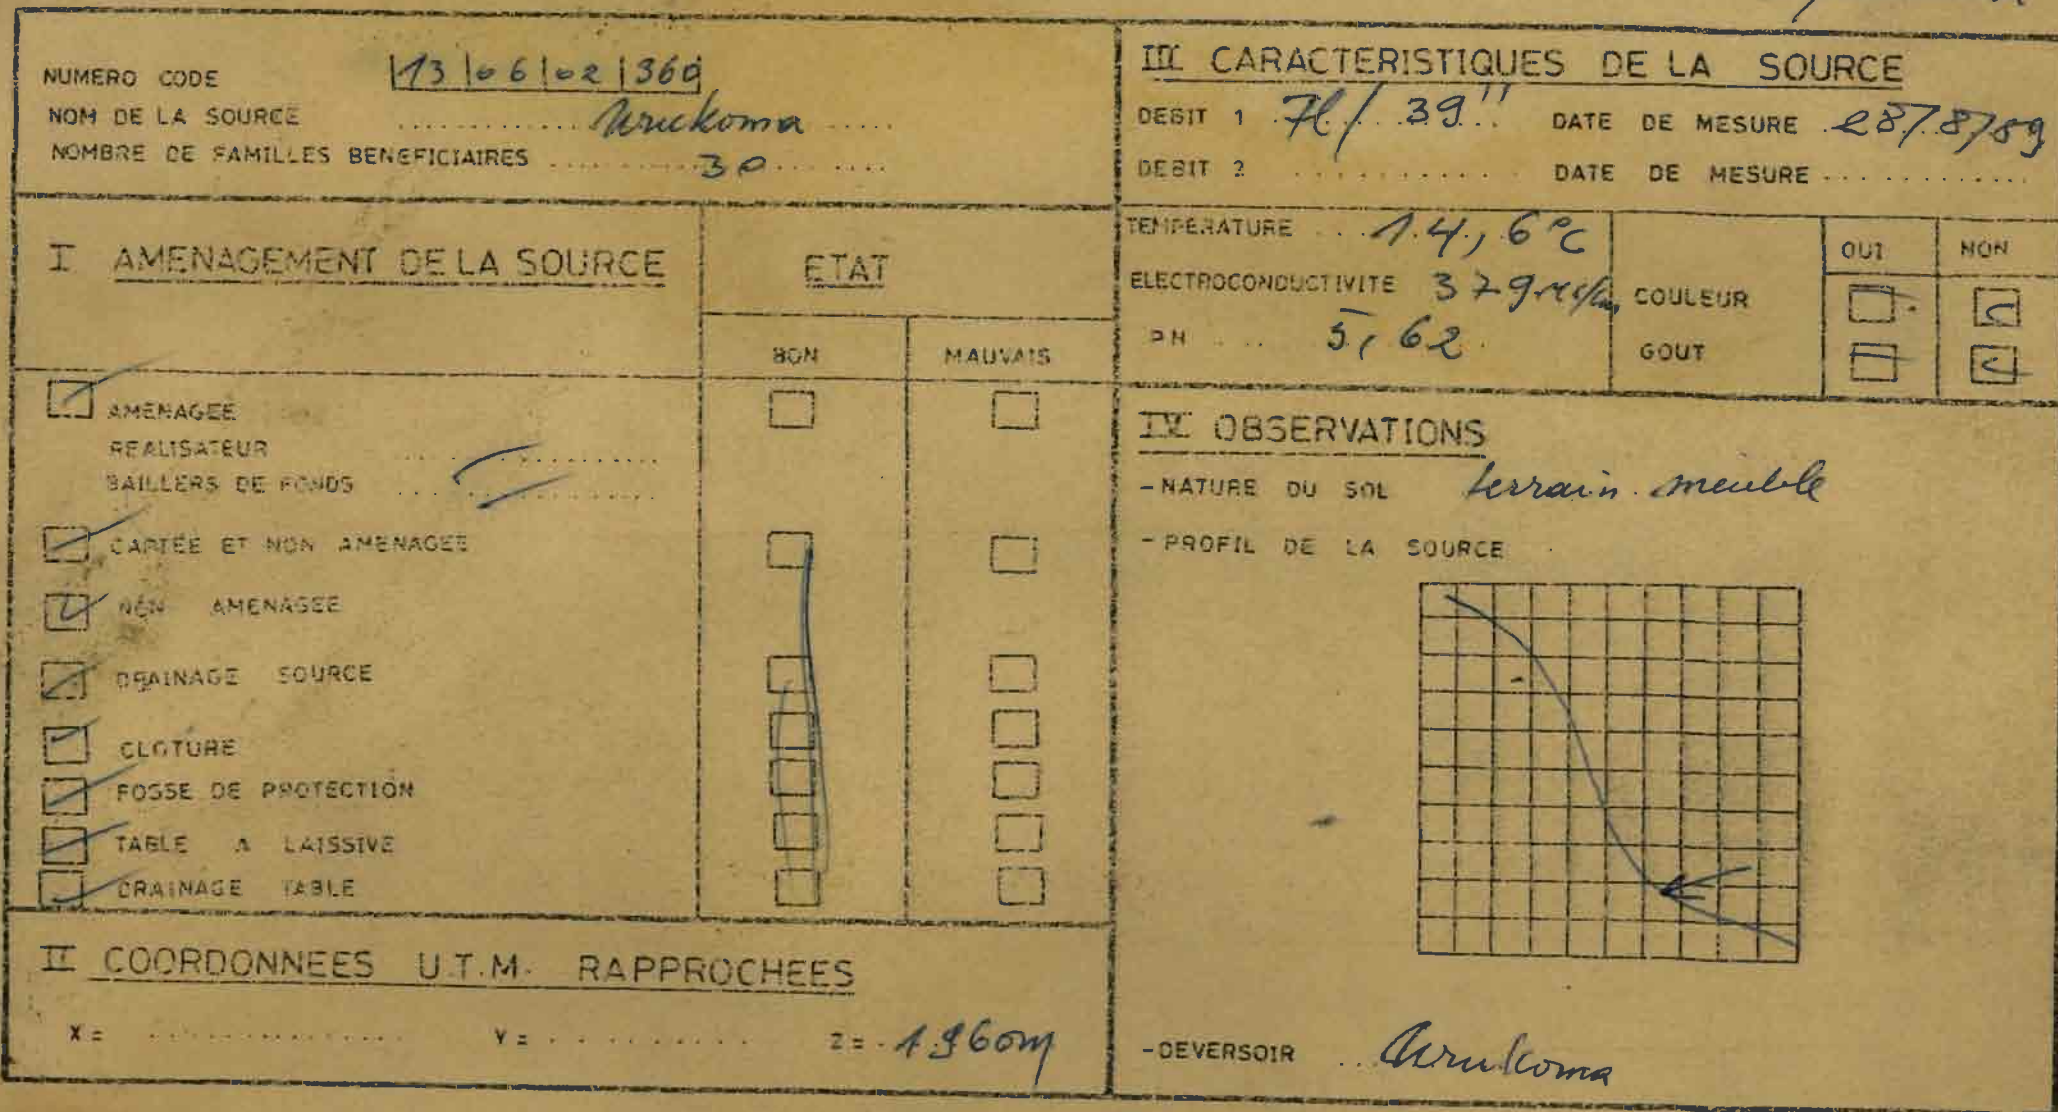 NUMERO CODE |13|06|02|360|
NOM DE LA SOURCE ............ Urukoma .....
NOMBRE DE FAMILLES BENEFICIAIRES ........ 30 ......
I AMENAGEMENT DE LA SOURCE
ETAT
BON MAUVAIS
AMENAGEE
REALISATEUR ....................
BAILLERS DE FONDS ....................
CAPTEE ET NON AMENAGEE
NON AMENAGEE
DRAINAGE SOURCE
CLOTURE
FOSSE DE PROTECTION
TABLE A LAISSIVE
DRAINAGE TABLE
II COORDONNEES U.T.M. RAPPROCHEES
X = ............... Y = ............ Z = 1.960m
III CARACTERISTIQUES DE LA SOURCE
DEBIT 1 7l / 39'' DATE DE MESURE 28/8/89
DEBIT 2 ............ DATE DE MESURE ............
TEMPERATURE ... 14,6°C
ELECTROCONDUCTIVITE 379
PH .... 5,62
OUI NON
COULEUR
GOUT
IV OBSERVATIONS
-NATURE DU SOL terrain meuble
-PROFIL DE LA SOURCE
-DEVERSOIR .. Urukoma